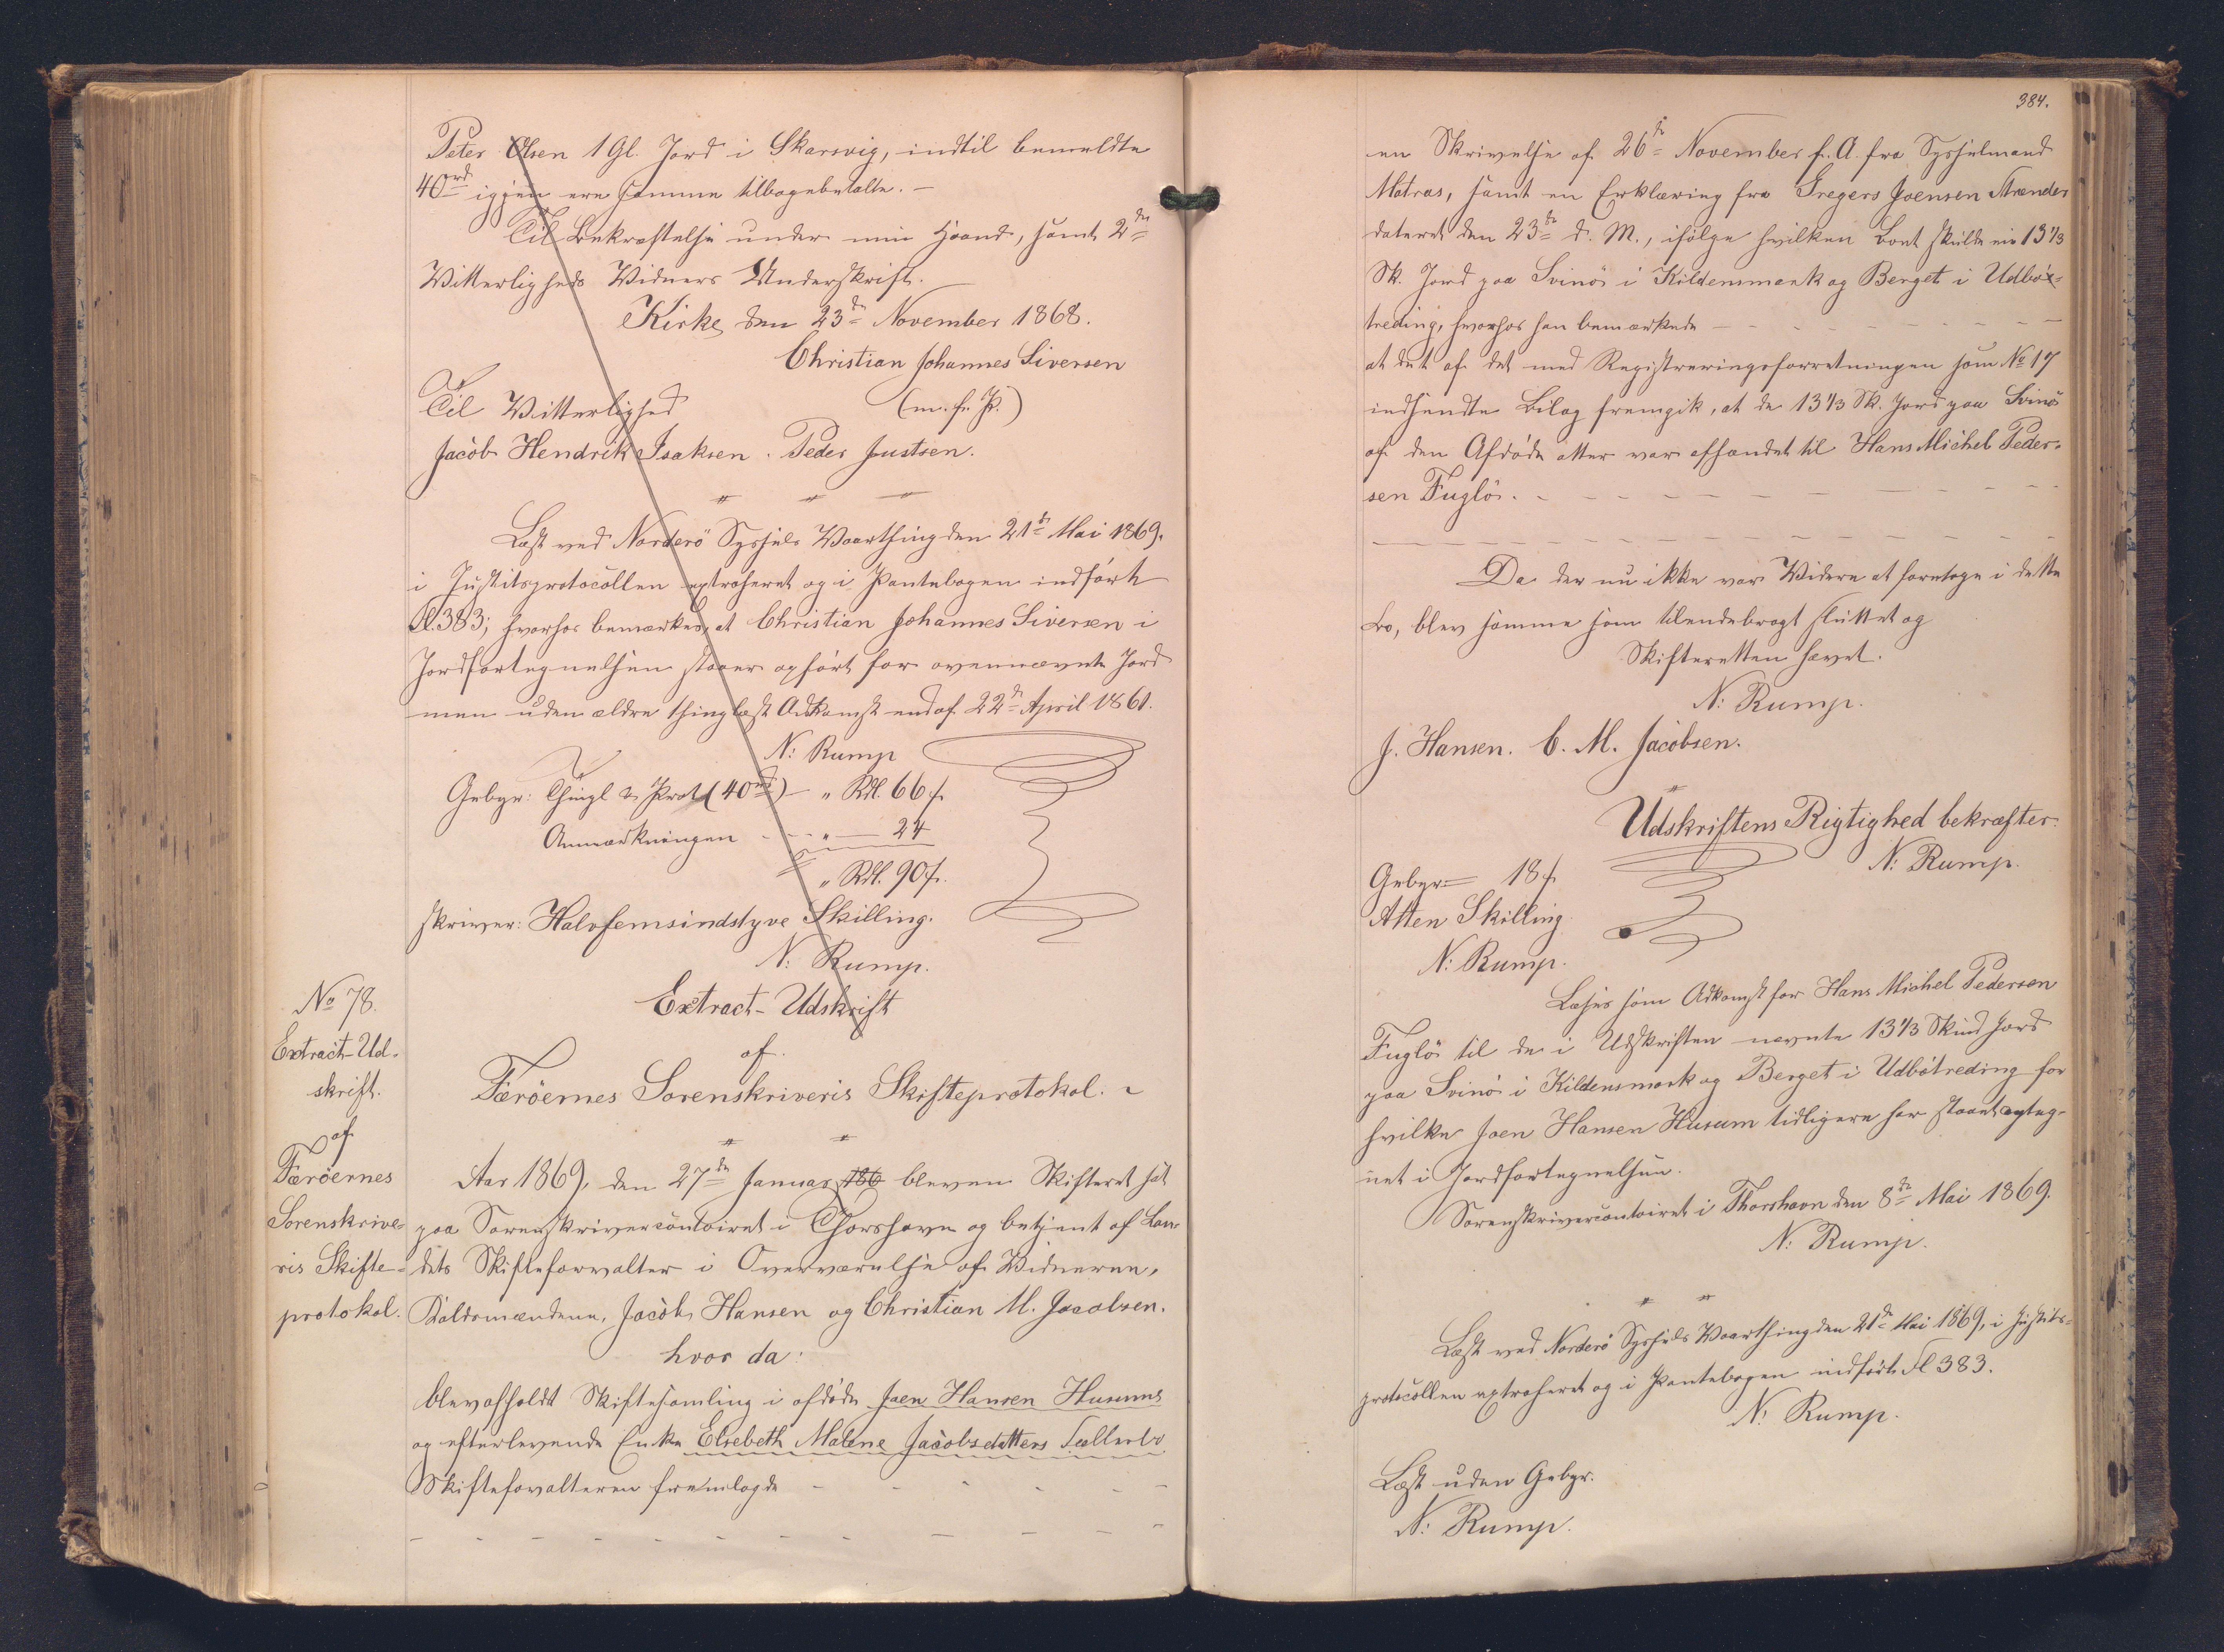 Peter Olsen 1 Gl. Jord i Skarsvig, indtil bemeldte
40rd igjen ere samme tilbagebetalte. —
Til Bekræftelse under min Haand, samt 2de
Vitterligheds Vidners Underskrift.
Kirke, den 23de November 1868.
Christian Johannes Siversen
Til Vitterlighed (m. f. P.)
Jacob Hendrik Isaksen. Peder Justsen.
Læst ved Norderö Syssels Vaarthing den 21de Mai 1869,
i Justitsprotocollen extraheret og i Pantebogen indført
Fl. 383; hvorhos bemærkes, at Christian Johannes Siversen i
Jordfortegnelsen staaer opført for ovennævnte Jord
men uden ældre thinglæst Adkomst end af 22de April 1861.
N: Rump
Gebyr: Thingl & Prot (40rd) — " Rdl. 66 f.
Anmærkningen - - " — 24
" Rdl. 90 f.
skriver: Halvfemsindstyve Skilling.
N: Rump.
No 78.
Extract-Ud-
skrift.
af
Færöernes
Sorenskrive-
ris Skifte-
protokol.
Extract-Udskrift
af
Færöernes Sorenskriveris Skifteprotokol. ~
Aar 1869, den 27de Januar 186 bleven Skifteret sat
paa Sorenskrivercontoiret i Thorshavn og betjent af Lan-
dets Skifteforvalter i Overværelse af Vidnerne,
Koldsmændene, Jacob Hansen og Christian M. Jacobsen.
hvor da:
blev afholdt Skiftesamling i afdøde Joen Hansen Husums
og efterlevende Enke Elsebeth Malene Jacobsdatters Fællesbo
Skifteforvalteren fremlagde - - - - -
384.
en Skrivelse af 26de November f. A. fra Sysselmand
Matras, samt en Erklæring fra Gregers Joensen Strænder
dateret den 23de d. M., ifølge hvilken Boet skulde eie 13 1/3
Sk. Jord paa Svinö i Kildensmark og Berget i Udbö-
treding, hvorhos han bemærkede - - - - -
at det af det med Registreringsforretningen som No 17
indsendte Bilag fremgik, at de 13 1/3 Sk. Jord paa Svinö
af den Afdøde atter var afhændet til Hans Michel Peder-
sen Fuglö. - - - - -
Da der nu ikke var Videre at foretage i dette
Bo, blev samme som tilendebragt sluttet og
Skifteretten hævet.
N: Rump.
J. Hansen. C. M. Jacobsen.
Udskriftens Rigtighed bekræfter.
N: Rump.
Gebyr= 18 f.
Atten Skilling.
N: Rump.
Læses som Adkomst for Hans Michel Pedersen
Fuglö til de i Udskriften nævnte 13 1/3 Skind Jord
paa Svinö i Kildensmark og Berget i Udbötreding for
hvilke Joen Hansen Husum tidligere har staaet opteg-
net i Jordfortegnelsen.
Sorenskrivercontoiret i Thorshavn den 8de Mai 1869.
N: Rump.
Læst ved Norderö Syssels Vaarthing den 21de Mai 1869, i Justits-
protocollen extraheret og i Pantebogen indført Fl 383.
N: Rump.
Læst uden Gebyr.
N: Rump.